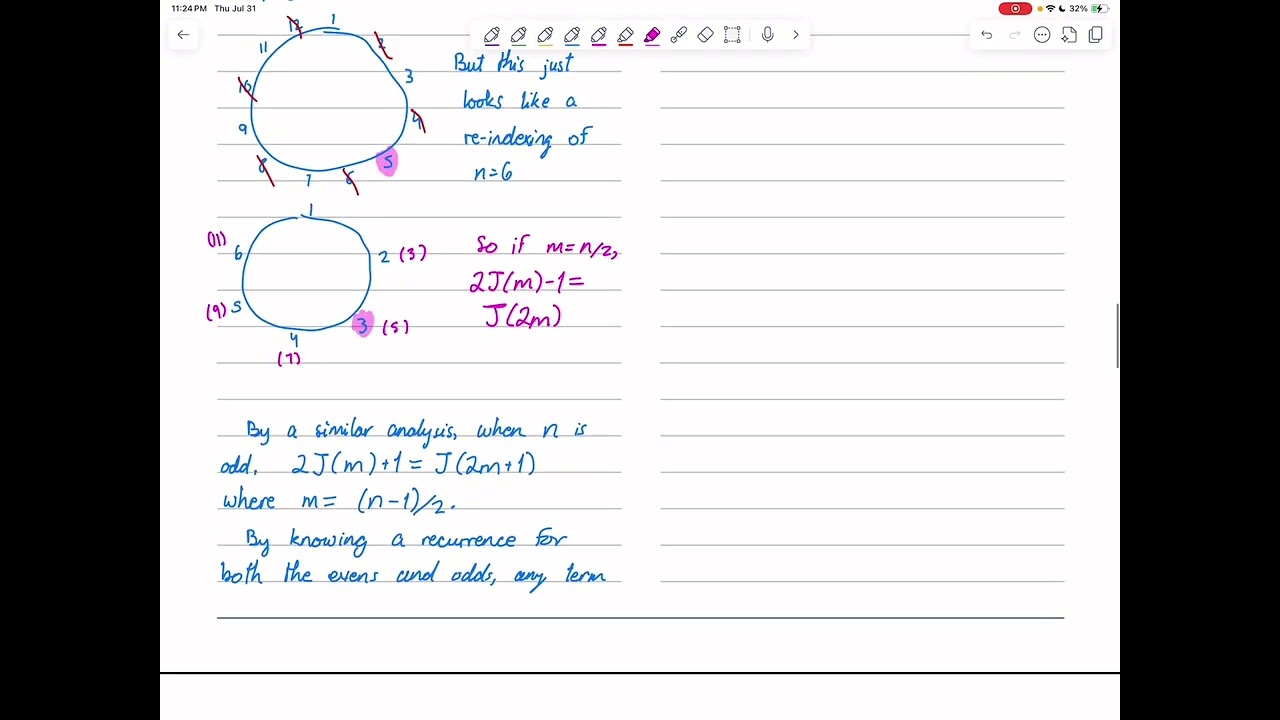 11:24 PM Thu Jul 31
32%
12 1
11 2
10 3
9 4
8 5
7 6
But this just
looks like a
re-indexing of
n=6
1
(11) 6 2 (3)
(9) 5 3 (5)
4
(7)
So if m=n/2,
2J(m)-1=
J(2m)
By a similar analysis, when n is
odd, 2J(m)+1=J(2m+1)
where m= (n-1)/2.
By knowing a recurrence for
both the evens and odds, any term